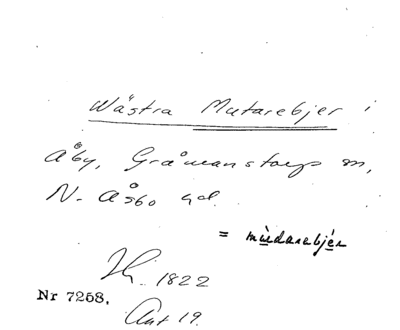 Wästra Mutarebjer i
Åby, Gråmanstorps sn,
N. Åsbo hd.
= mùdarebjér
Jh. 1822
Nr 7258.
Akt 19.